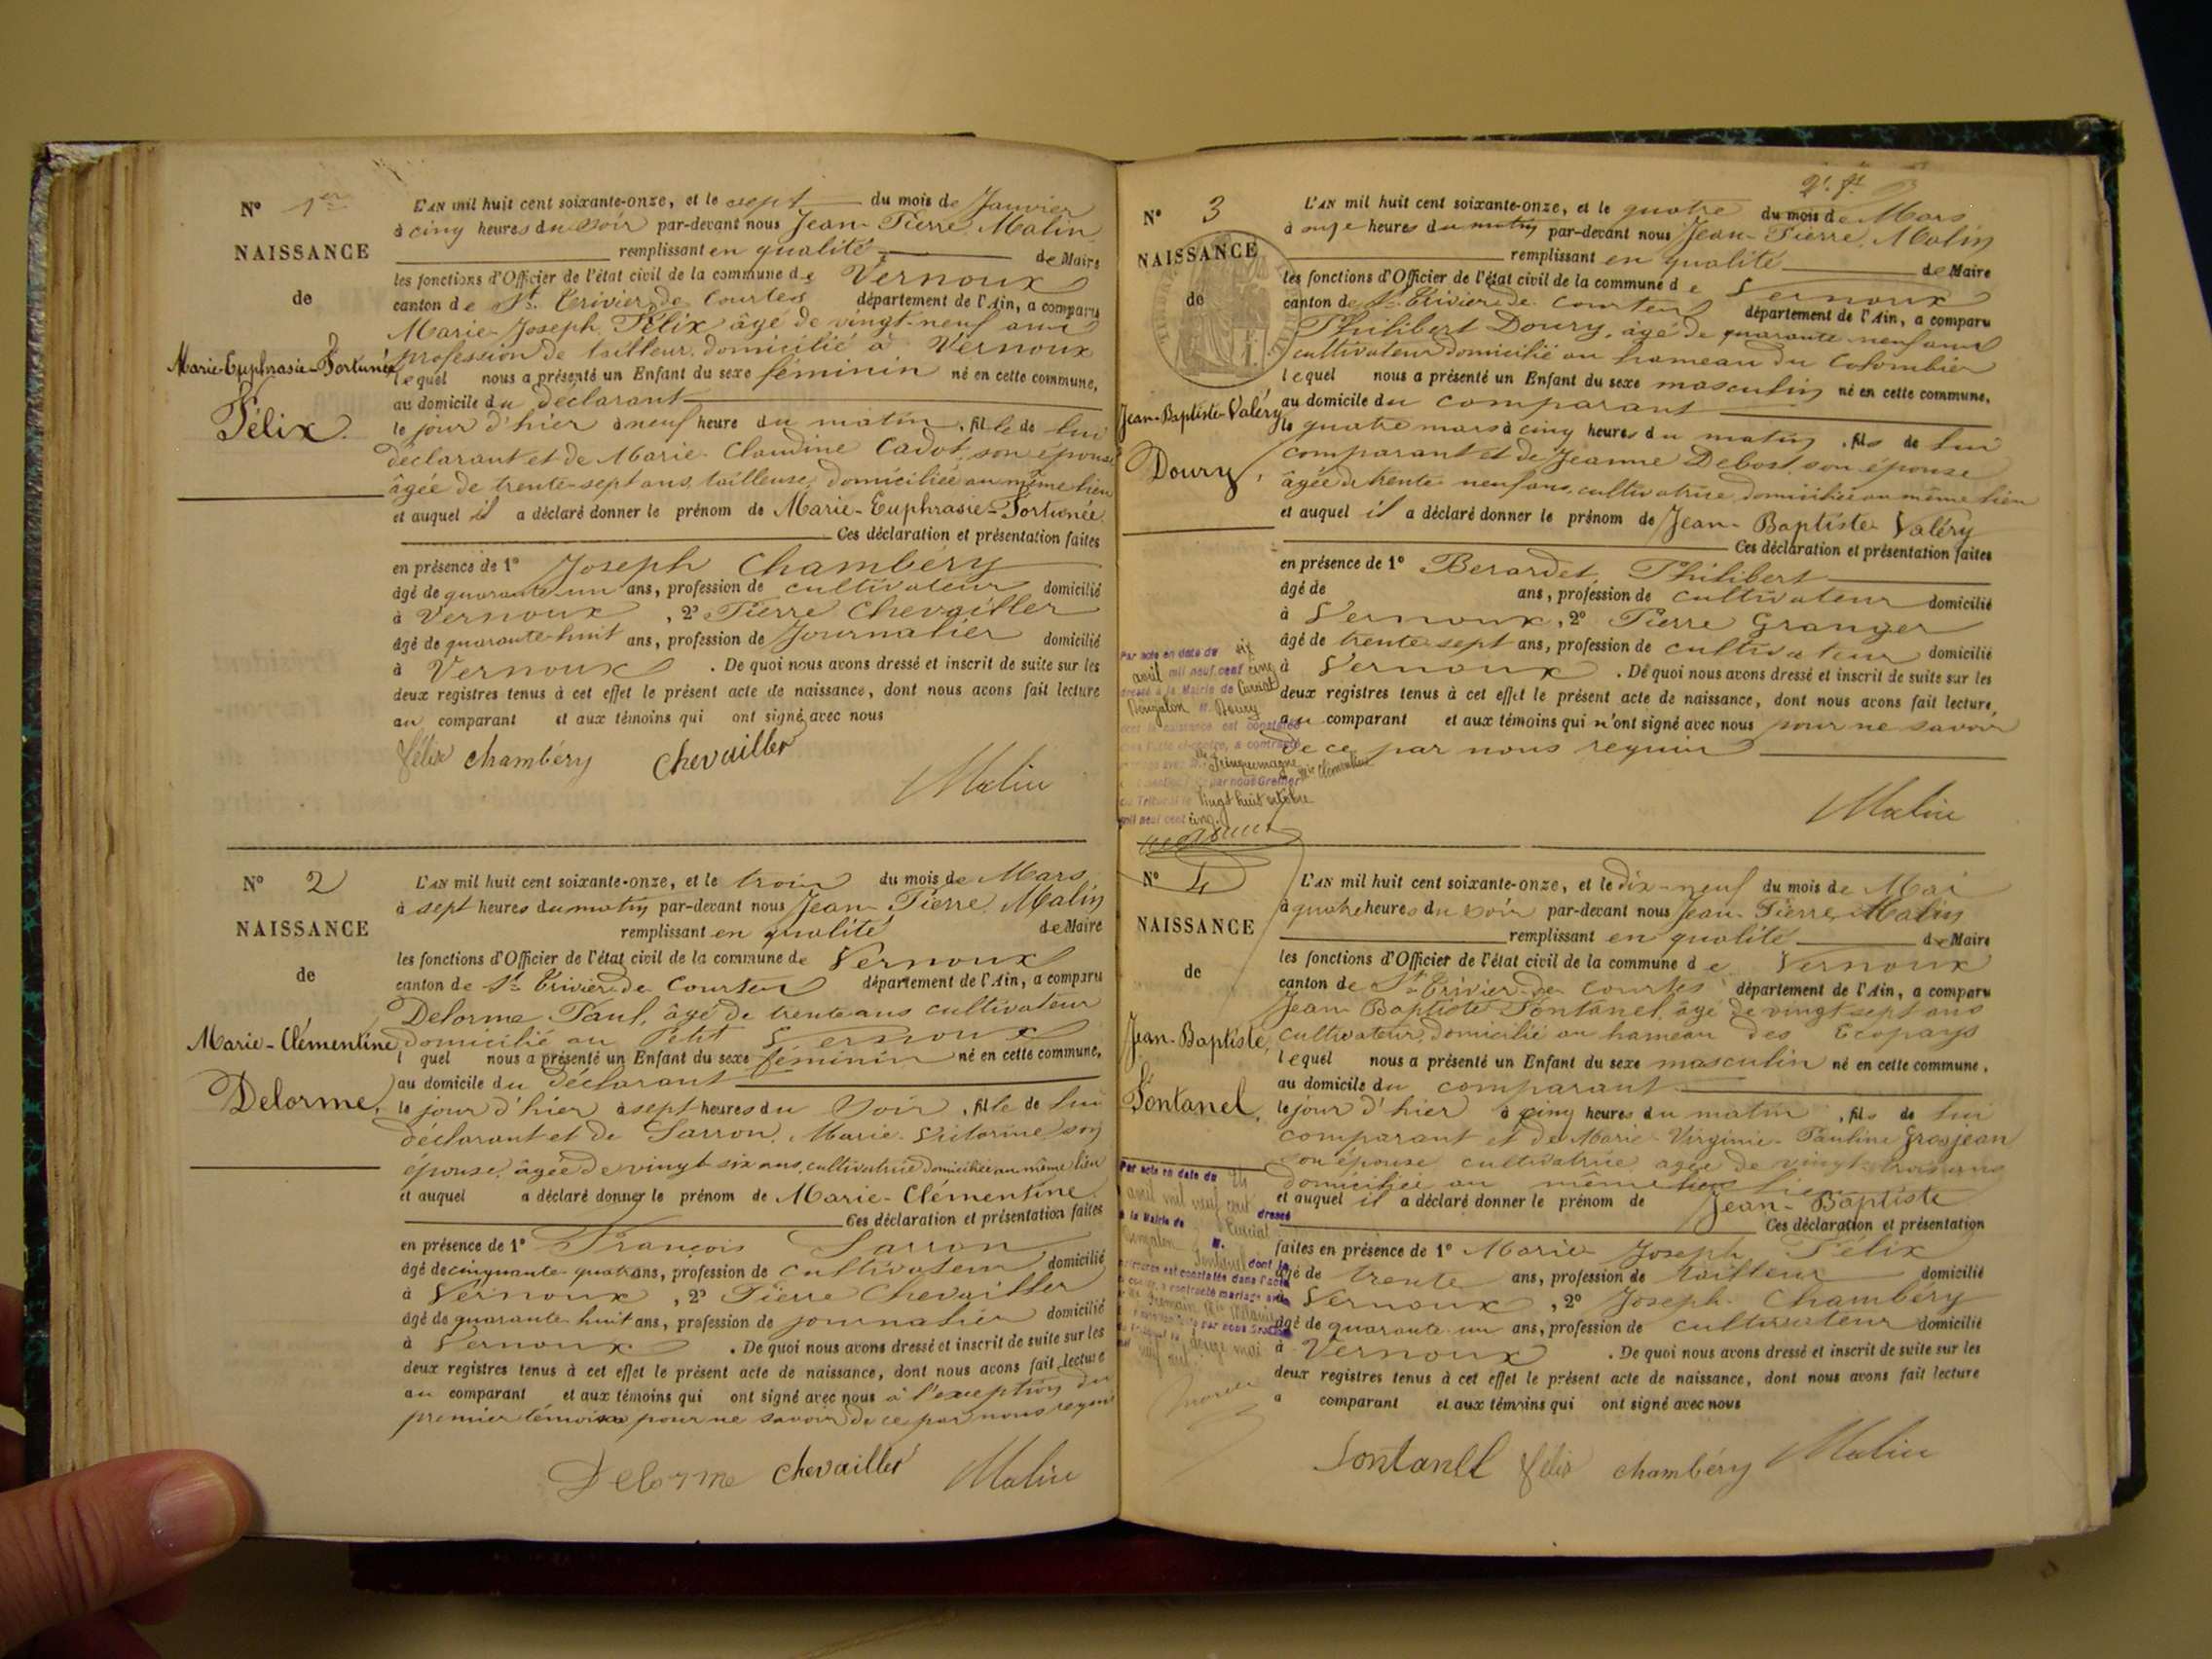 N° 1er
NAISSANCE
de
Marie-Euphrasie-Fortunée
Félix.
L'AN mil huit cent soixante-onze, et le sept du mois de Janvier
à cinq heures du soir par-devant nous Jean-Pierre Malin
remplissant en qualité de Maire
les fonctions d'Officier de l'état civil de la commune de Vernoux
canton de St Trivier de Courtes département de l'Ain, a comparu
Marie-Joseph Félix âgé de vingt-neuf ans
profession de tailleur domicilié à Vernoux
lequel nous a présenté un Enfant du sexe féminin né en cette commune,
au domicile du déclarant
le jour d'hier à neuf heure du matin, fille de lui
déclarant et de Marie Claudine Cadot, son épouse
âgée de trente-sept ans, tailleuse, domiciliée au même lieu
et auquel il a déclaré donner le prénom de Marie-Euphrasie-Fortunée.
Ces déclaration et présentation faites
en présence de 1° Joseph Chambéry
âgé de quarante-un ans, profession de cultivateur domicilié
à Vernoux, 2° Pierre Chevailler
âgé de quarante-huit ans, profession de Journalier domicilié
à Vernoux. De quoi nous avons dressé et inscrit de suite sur les
deux registres tenus à cet effet le présent acte de naissance, dont nous avons fait lecture
au comparant et aux témoins qui ont signé avec nous
félix chambéry chevailler
Malin
N° 2
NAISSANCE
de
Marie-Clémentine
Delorme.
L'AN mil huit cent soixante-onze, et le trois du mois de Mars
à sept heures du matin par-devant nous Jean-Pierre Malin
remplissant en qualité de Maire
les fonctions d'Officier de l'état civil de la commune de Vernoux
canton de St Trivier de Courtes département de l'Ain, a comparu
Delorme Paul, âgé de trente ans cultivateur
domicilié au Petit Vernoux
l quel nous a présenté un Enfant du sexe féminin né en cette commune,
au domicile du déclarant
le jour d'hier à sept heures du soir, fille de lui
déclarant et de Sarron Marie Victorine son
épouse, âgée de vingt-six ans, cultivatrice domiciliée au même lieu
et auquel a déclaré donner le prénom de Marie-Clémentine
Ces déclaration et présentation faites
en présence de 1° François Sarron
âgé de cinquante-quatre ans, profession de cultivateur domicilié
à Vernoux, 2° Pierre Chevailler
âgé de quarante huit ans, profession de journalier domicilié
à Vernoux. De quoi nous avons dressé et inscrit de suite sur les
deux registres tenus à cet effet le présent acte de naissance, dont nous avons fait lecture
au comparant et aux témoins qui ont signé avec nous à l'exception du
premier témoin pour ne savoir de ce par nous requis
Delorme chevailler Malin
N° 3
NAISSANCE
de
Jean-Baptiste-Valéry
Doury.
L'AN mil huit cent soixante-onze, et le quatre du mois de Mars
à onze heures du matin par-devant nous Jean-Pierre Malin
remplissant en qualité de Maire
les fonctions d'Officier de l'état civil de la commune de Vernoux
canton de St Trivier de Courtes département de l'Ain, a comparu
Philibert Doury, âgé de quarante neuf ans
cultivateur domicilié au hameau du Colombier
lequel nous a présenté un Enfant du sexe masculin né en cette commune,
au domicile du comparant
le quatre mars à cinq heures du matin, fils de lui
comparant et de Jeanne Debost son épouse
âgée de trente neuf ans, cultivatrice domiciliée au même lieu
et auquel il a déclaré donner le prénom de Jean-Baptiste Valéry
Ces déclaration et présentation faites
en présence de 1° Berardet Philibert
âgé de ans, profession de cultivateur domicilié
à Vernoux, 2° Pierre Granger
âgé de trente-sept ans, profession de cultivateur domicilié
à Vernoux. De quoi nous avons dressé et inscrit de suite sur les
deux registres tenus à cet effet le présent acte de naissance, dont nous avons fait lecture
au comparant et aux témoins qui n'ont signé avec nous pour ne savoir
de ce par nous requis
Malin
Par acte en date du six
avril mil neuf cent cinq
dressé à la Mairie de Curciat
Dongalon M. Doury
dont la naissance est constatée
dans l'acte ci-contre, a contracté
mariage avec Melle Trinquemagne Mie Clémentine
par nous Greffier
du Tribunal le vingt huit octobre
mil neuf cent cinq.
N° 4
NAISSANCE
de
Jean-Baptiste,
Fontanel.
L'AN mil huit cent soixante-onze, et le dix-neuf du mois de Mai
à quatre heures du soir par-devant nous Jean-Pierre Malin
remplissant en qualité de Maire
les fonctions d'Officier de l'état civil de la commune de Vernoux
canton de St Trivier de Courtes département de l'Ain, a comparu
Jean Baptiste Fontanel, âgé de vingt sept ans
cultivateur, domicilié au hameau des Ecopays
lequel nous a présenté un Enfant du sexe masculin né en cette commune,
au domicile du comparant
le jour d'hier à cinq heures du matin, fils de lui
comparant et de Marie-Virginie-Pauline Grosjean
son épouse cultivatrice agée de vingt-trois ans
domiciliée au même lieu
et auquel il a déclaré donner le prénom de Jean-Baptiste
Ces déclaration et présentation
faites en présence de 1° Marie Joseph Félix
âgé de trente ans, profession de tailleur domicilié
à Vernoux, 2° Joseph Chambéry
âgé de quarante-un ans, profession de cultivateur domicilié
à Vernoux. De quoi nous avons dressé et inscrit de suite sur les
deux registres tenus à cet effet le présent acte de naissance, dont nous avons fait lecture
a comparant et aux témoins qui ont signé avec nous
Fontanel félix chambéry Malin
Par acte en date du
avril mil neuf cent dressé
à la Mairie de Curciat
Dongalon M.
Fontanel dont la
naissance est constatée dans l'acte
ci-contre, a contracté mariage avec
Mie
par nous Greffier
du Tribunal le douze mai
mil neuf cent